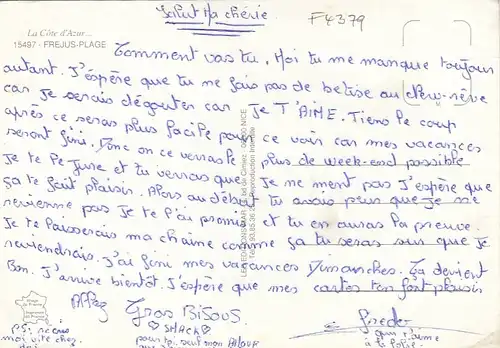 Salut Ma chérie
F4379
La Côte d'Azur...
15497 - FREJUS-PLAGE
Comment vas tu, Moi tu me manque toujour
autant. J'éspère que tu ne fais pas de betise au
car je serais dégouter car je T'AIME. Tiens le coup
après ce seras plus facile pour ce voir car mes vacances
seront fini. Donc on ce verras le plus de week-end possible
Je te le jure et tu verras que Je ne ment pas J'éspère que
ça te fait plaisir. Alors au début tu avais peur que je ne
revienne pas Je te l'ai promis et tu en auras la preuve.
Je te laisserais ma chaine comme ça tu seras sur que je
reviendrais. J'ai fini mes vacances Dimanches. Ça devient
Bon. J'arrive bientôt. J'éspère que mes cartes ten font plaisir
Allez Gros BiSouS
SHACK
pour toi seul mon
PS:
moi vite chez
toi
qui t'aime
à la folie